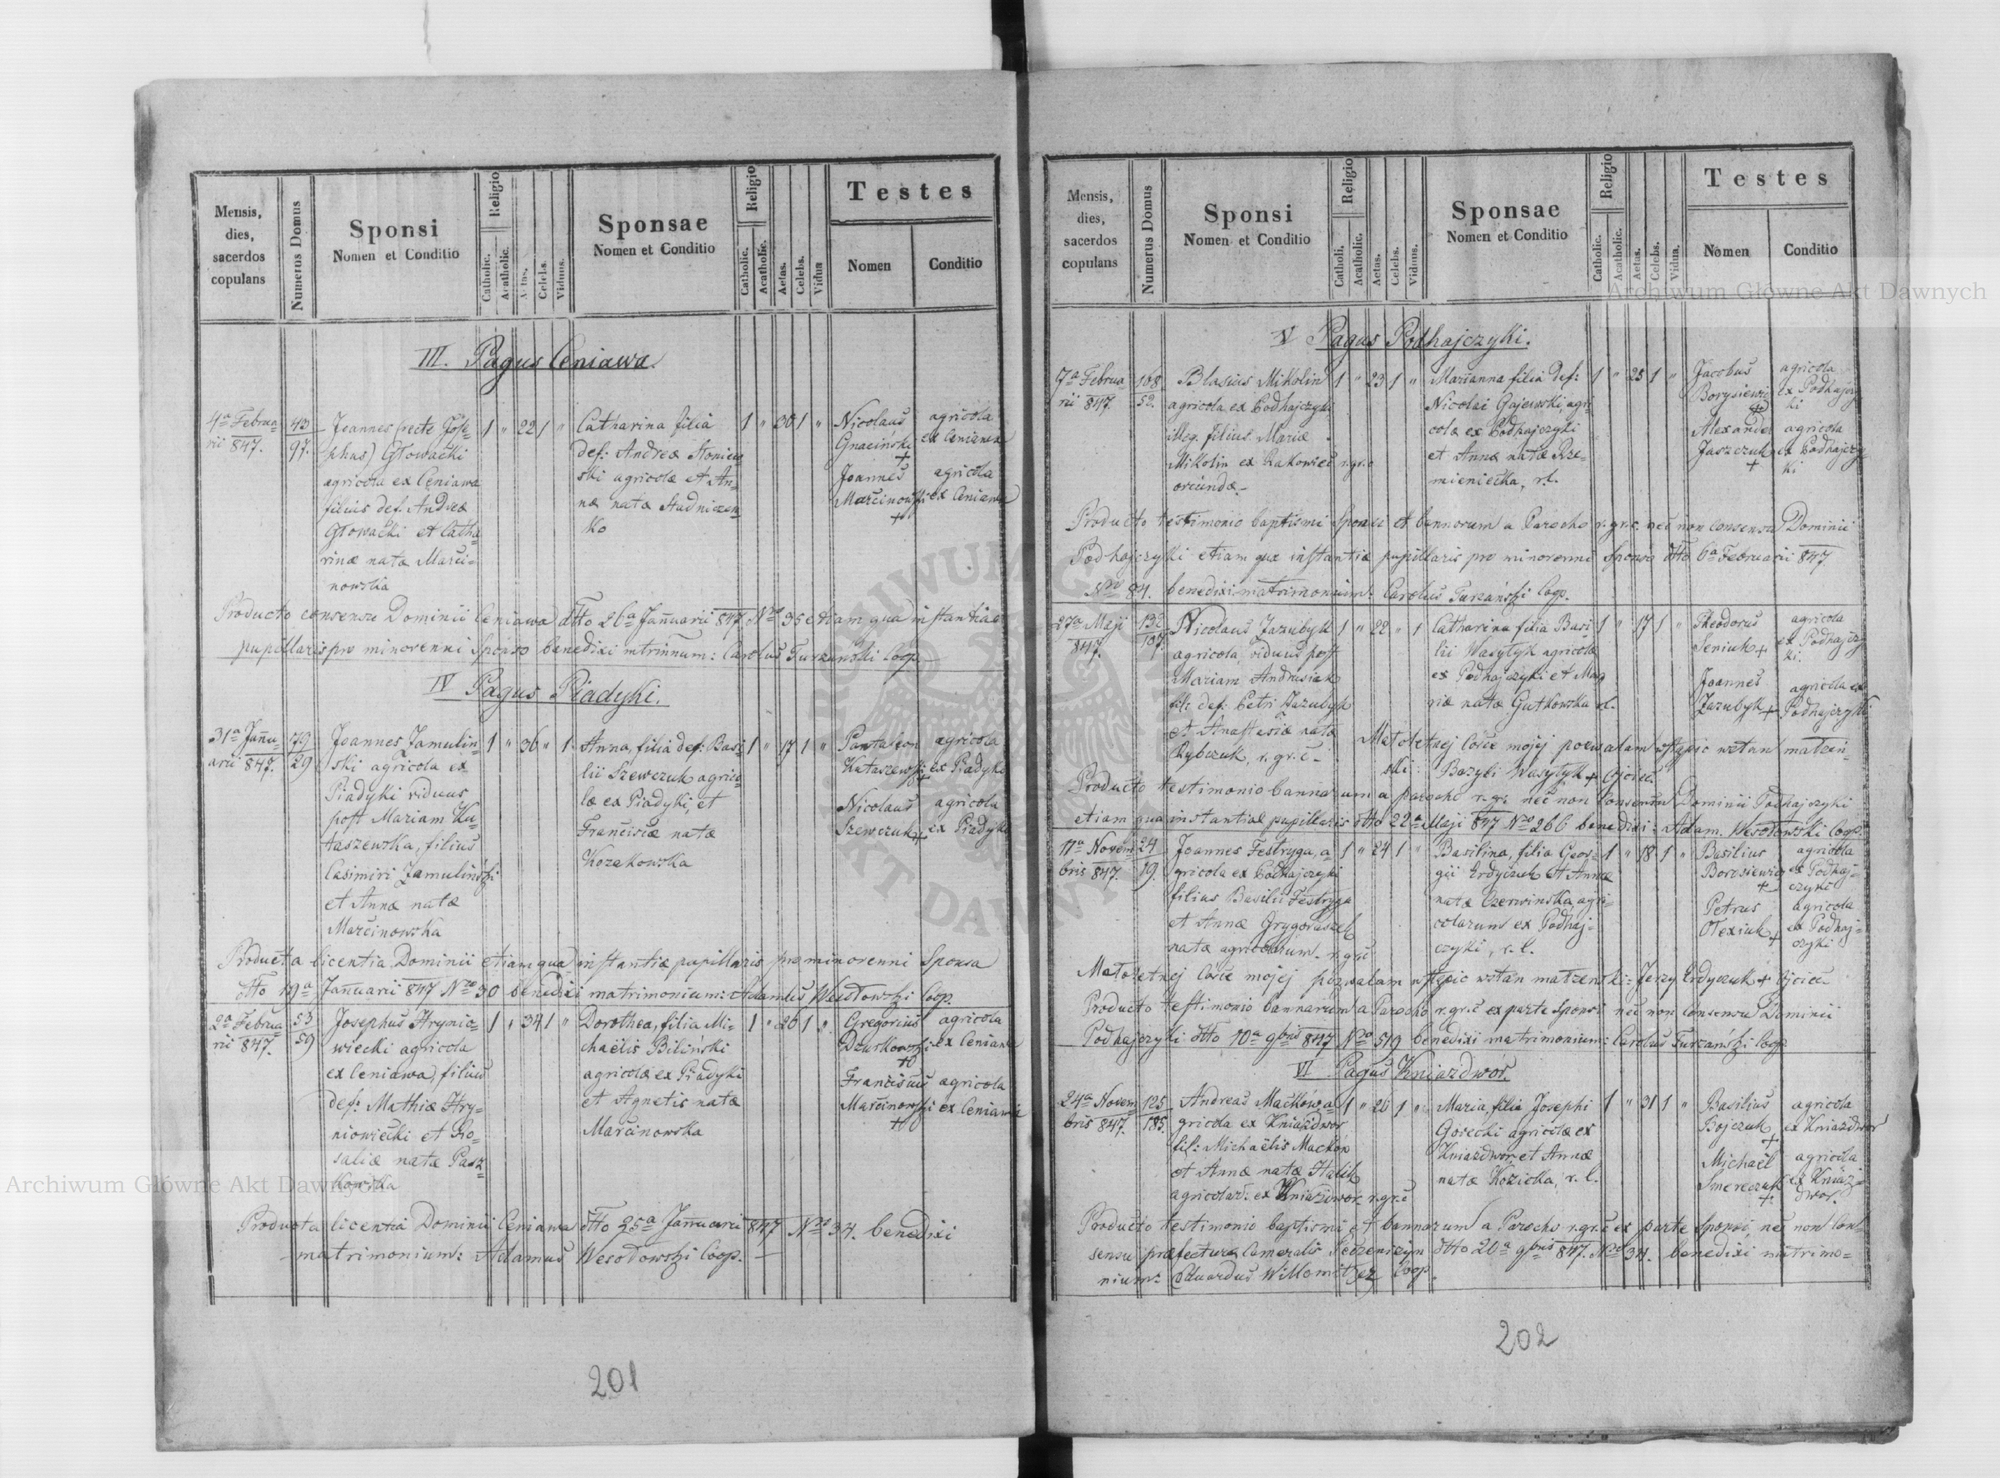 Mensis, dies, sacerdos copulans
Numerus Domus
Sponsi
Nomen et Conditio
Religio
Catholic.
Acatholic.
Aetas.
Celebs.
Viduus.
Sponsae
Nomen et Conditio
Religio
Catholic.
Acatholic.
Aetas.
Celebs.
Vidua
Testes
Nomen
Conditio
III. Pagus Ceniawa.
4ta Februa-
rii 847.
43
97.
Joannes (recte Jose-
phus) Głowacki
agricola ex Ceniawa
filius def. Andreæ
Głowacki et Catha-
rinæ natæ Marci-
nowska
1 " 22 1 "
Catharina filia
def: Andreæ
agricolæ et An-
næ natæ Studniczen-
ko
1 " 30 1 "
Nicolaus
Gnaciński
+
Joannes
Marcinowski
+
agricola
ex Ceniawa
agricola
ex Ceniawa
Producto consensu Dominii Ceniawa dtto 26a Januarii 847 Nro 35 etiam qua instantiæ
pupillaris pro minorenni Sponso benedixi mtrimnum: Carolus Turzański Coop.
IV Pagus Piadyki.
31a Janu-
arii 847.
179
29
Joannes Jamuliń-
ski agricola ex
Piadyki viduus
post Mariam Ku-
taszewska, filius
Casimiri Jamuliński
et Annæ natæ
Marcinowska
1 " 36 " 1
Anna, filia def: Basi-
lii Szewczuk agrico-
læ ex Piadyki, et
Franciscæ natæ
Kozakowska
1 " 17 1 "
Pantaleon
Kutaszewski
+
Nicolaus
Szewczuk +
agricola
ex Piadyki
agricola
ex Piadyki
Producta licentia Dominii etiam qua instantiæ pupillaris pro minorenni Sponsa
dtto 19a Januarii 847 Nro 30 benedixi matrimonium: Adamus Wesołowski Coop.
2a Februa
rii 847.
53
59
Josephus Hrynio-
wiecki agricola
ex Ceniawa, filius
def: Mathiæ Hry-
niowiecki et Ro-
saliæ natæ Pasz-
kowska
1 " 34 1 "
Dorothea, filia Mi-
chaelis Biliński
agricolæ ex Piadyki
et Agnetis natæ
Marcinowska
1 " 20 1 "
Gregorius
+
Franciscus
Marcinowski
+
agricola
ex Ceniawa
agricola
ex Ceniawa
Producta licentia Dominii Ceniawa dtto 25a Januarii 847 Nro 34. benedixi
matrimonium: Adamus Wesołowski Coop.
201
Mensis, dies, sacerdos copulans
Numerus Domus
Sponsi
Nomen et Conditio
Religio
Catholi.
Acatholic.
Aetas.
Celebs.
Viduus.
Sponsae
Nomen et Conditio
Religio
Catholic.
Acatholic.
Aetas.
Celebs.
Vidua.
Testes
Nomen
Conditio
V Pagus Podhajczyki.
7a Februa
rii 847.
168
52.
Blasius Mikolin
agricola ex Podhajczyki
illeg. filius Mariæ
Mikolin ex Rakowiec r.gr.c
oriundæ.
1 " 23 1 "
Marianna filia def:
Nicolai Gajewski, agri-
colæ ex Podhajczyki
et Annæ natæ Krze-
mieniecka, r.l.
1 " 25 1 "
Jacobus
Borysiewicz
+
Alexander
Jaszczuk
+
agricola
ex Podhajczy-
ki
agricola
ex Podhajczy-
ki
Producto testimonio baptismi Sponsi et bannorum a Parocho r.gr.c. nec non consensu Dominii
Podhajczyki etiam qua instantiæ pupillaris pro minorenni Sponso dtto 6a Februarii 847
Nro 84. benedixi matrimonium: Carolus Turzański Coop.
27a Maji
847.
132
107.
Nicolaus Jazubyk
agricola, viduus post
Mariam Andrusiak
fil: def: Petri Jazubyk
et Anastasiæ natæ
Rybczuk, r.gr.c.
1 " 22 " 1
Catharina filia Basi-
lii Wasylyk agricolæ
ex Podhajczyki et Ma-
riæ natæ Gutkowska r.l.
1 " 17 1 "
Theodorus
Seniuk +
Joannes
Jazubyk +
agricola
ex Podhajczy
ki.
agricola ex
Podhajczyki
Małoletnej Córce mojej pozwalam wstąpic wstan małżeń-
ski: Bazyli Wasylyk + Ojciec
Producto testimonio bannorum a parocho r.gr. nec non Consensu Dominii Podhajczyki
etiam qua instantiæ pupillaris dtto 22a Maji 847 Nro 266 benedixi: Adam. Wesołowski Coop.
11a Novem-
bris 847.
24
19.
Joannes Festryga, a-
gricola ex Podhajczyki
filius Basilii Festryga
et Annæ Grygoraszek
natæ agricolarum r.gr.c
1 " 24 1 "
Basilina, filia Geor-
gii Erdyczuk et Annæ
natæ Czerwinska, agri-
colarum ex Podhaj-
czyki, r.l.
1 " 18 1 "
Basilius
Borosiewicz
+
Petrus
Olexiuk +
agricola
ex Podhaj-
czyki
agricola
ex Podhaj-
czyki
Małoletnej Córce mojej pozwalam wstąpic wstan małżenski: Jerzy Erdyczuk + Ojciec
Producto testimonio bannorum a Parocho r.gr.c ex parte Sponsi nec non Consensu Dominii
Podhajczyki dtto 10a 9bris 847 Nro 519 benedixi matrimonium: Carolus Turzański Coop.
VI Pagus Kniazdwór.
24a Novem-
bris 847.
125
185.
Andreas Maćków, a-
gricola ex Kniazdwor
fil: Michaelis Maćków
et Annæ natæ
agricolar. ex Kniazdwor, r.gr.c
1 " 26 1 "
Maria, filia Josephi
Gorecki agricolæ ex
Kniazdwor et Annæ
natæ Kozicka, r.l.
1 " 31 1 "
Basilius
Bojczuk
+
Michael
Smereczuk
+
agricola
ex Kniazdwor
agricola
ex Kniaz-
dwor.
Producto testimonio baptismi et bannorum a Parocho r.gr.c ex parte Sponsi, nec non Con-
sensu præfecturæ Cameralis Peczeniżyn dtto 20a 9bris 847. Nro 34. benedixi matrimo-
nium: Eduardus Willomitzer Coop.
202
Archiwum Główne Akt Dawnych
Archiwum Główne Akt Dawnych
ARCHIWUM GŁÓWNE AKT DAWNYCH